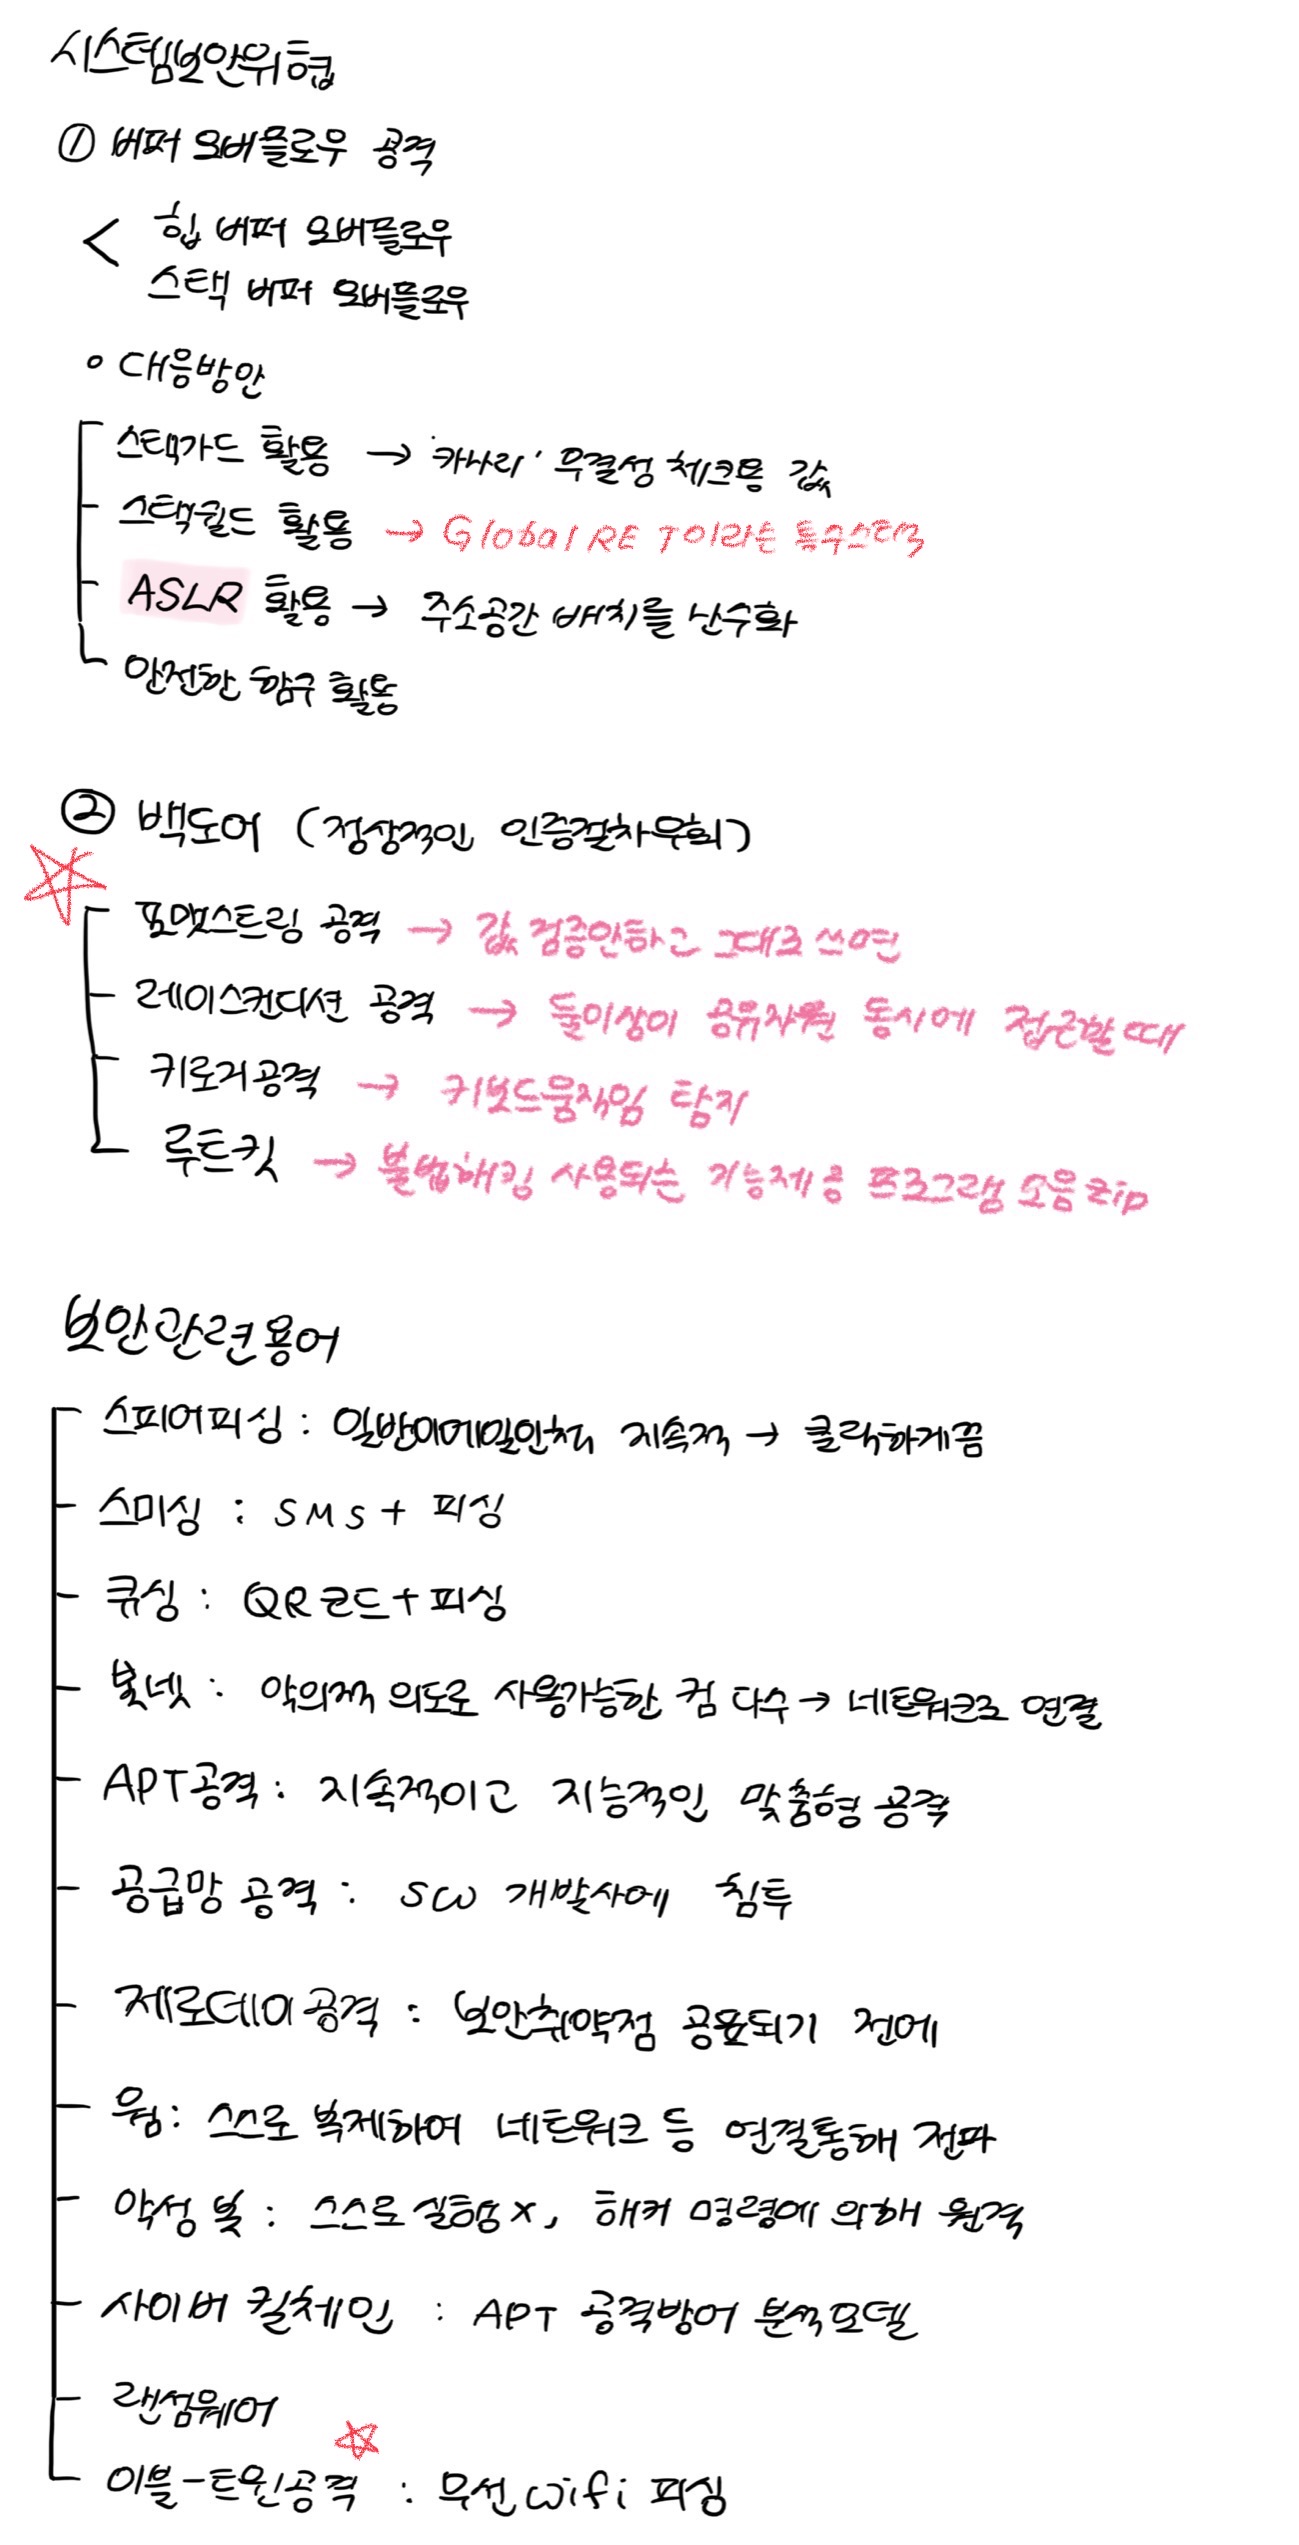 시스템보안위협
① 버퍼 오버플로우 공격
< 힙 버퍼 오버플로우
스택 버퍼 오버플로우
∘ 대응방안
스택가드 활용 → '카나리' 무결성 체크용 값
스택쉴드 활용 → Global RET이라는 특수스택
ASLR 활용 → 주소공간 배치를 난수화
안전한 함수 활용
② 백도어 (정상적인 인증절차우회)
포맷스트링 공격 → 값 검증안하고 그대로 쓰면
레이스컨디션 공격 → 둘이상이 공유자원 동시에 접근할때
키로거공격 → 키보드움직임 탐지
루트킷 → 불법해킹 사용되는 기능제공 프로그램 모음zip
보안관련용어
스피어피싱 : 일반이메일인척 지속적 → 클릭하게끔
스미싱 : SMS + 피싱
큐싱 : QR코드 + 피싱
봇넷 : 악의적 의도로 사용가능한 컴 다수 → 네트워크로 연결
APT공격 : 지속적이고 지능적인 맞춤형 공격
공급망 공격 : SW 개발사에 침투
제로데이공격 : 보안취약점 공표되기 전에
웜 : 스스로 복제하여 네트워크 등 연결통해 전파
악성 봇 : 스스로 실행x, 해커 명령에 의해 원격
사이버 킬체인 : APT 공격방어 분석모델
랜섬웨어
이블-트윈공격 : 무선wifi 피싱